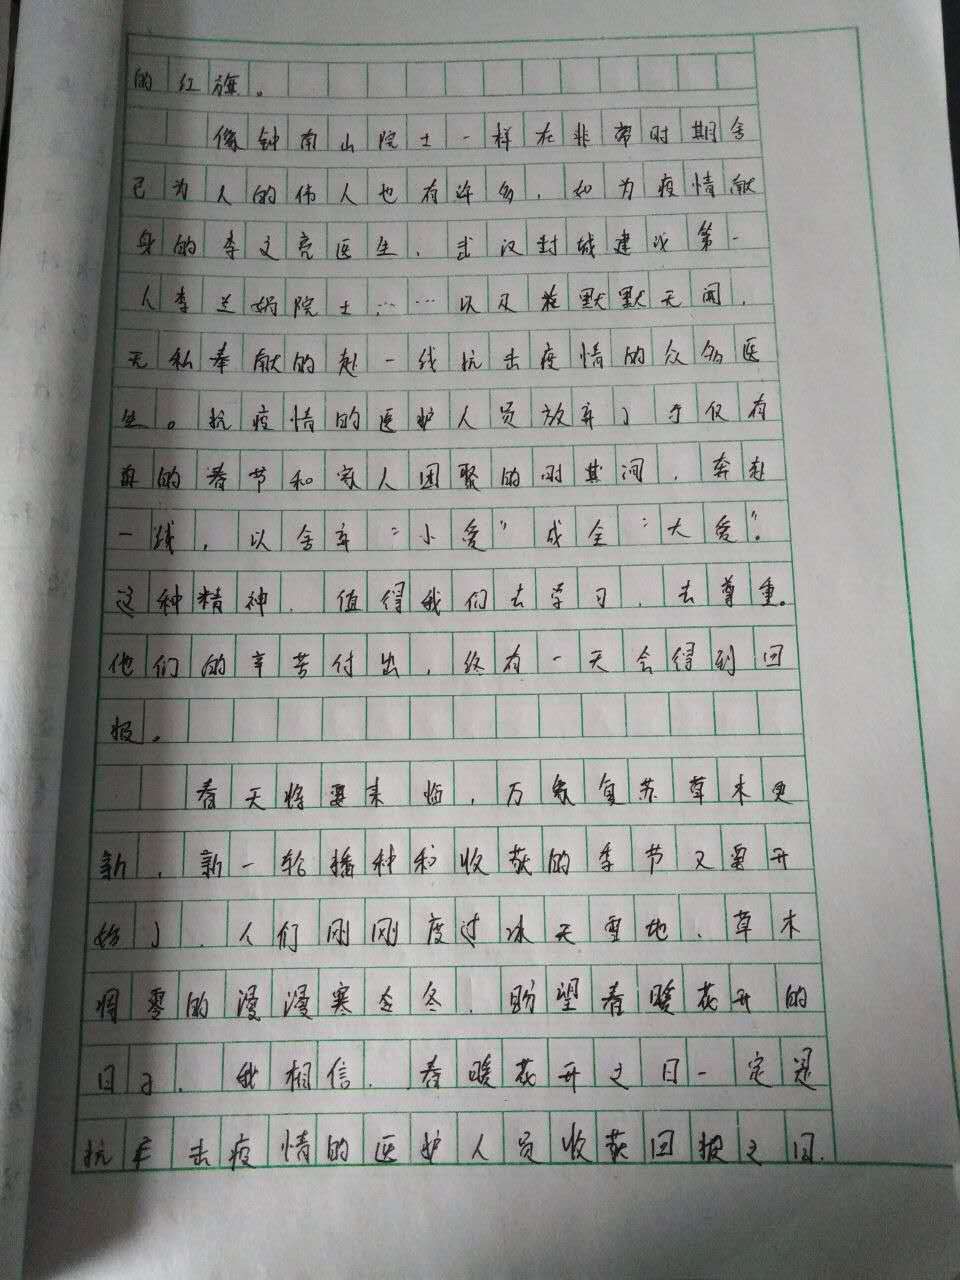 的红旗。
像钟南山院士一样在非常时期舍
己为人的伟人也有许多，如为疫情献
身的李文亮医生，武汉封城建议第一
人李兰娟院士……以及在默默无闻，
无私奉献的赴一线抗击疫情的众多医
生。抗疫情的医护人员放弃了今仅有
的春节和家人团聚的时其间，奔赴
一线，以舍弃“小爱”成全“大爱”。
这种精神，值得我们去学习，去尊重。
他们的辛苦付出，终有一天会得到回
报。
春天将要来临，万象复苏草木更
新，新一轮播种和收获的季节又要开
始了，人们刚刚度过冰天雪地、草木
凋零的漫漫寒冬，盼望春暖花开的
日子，我相信，春暖花开之日一定是
抗击疫情的医护人员收获回报之日，